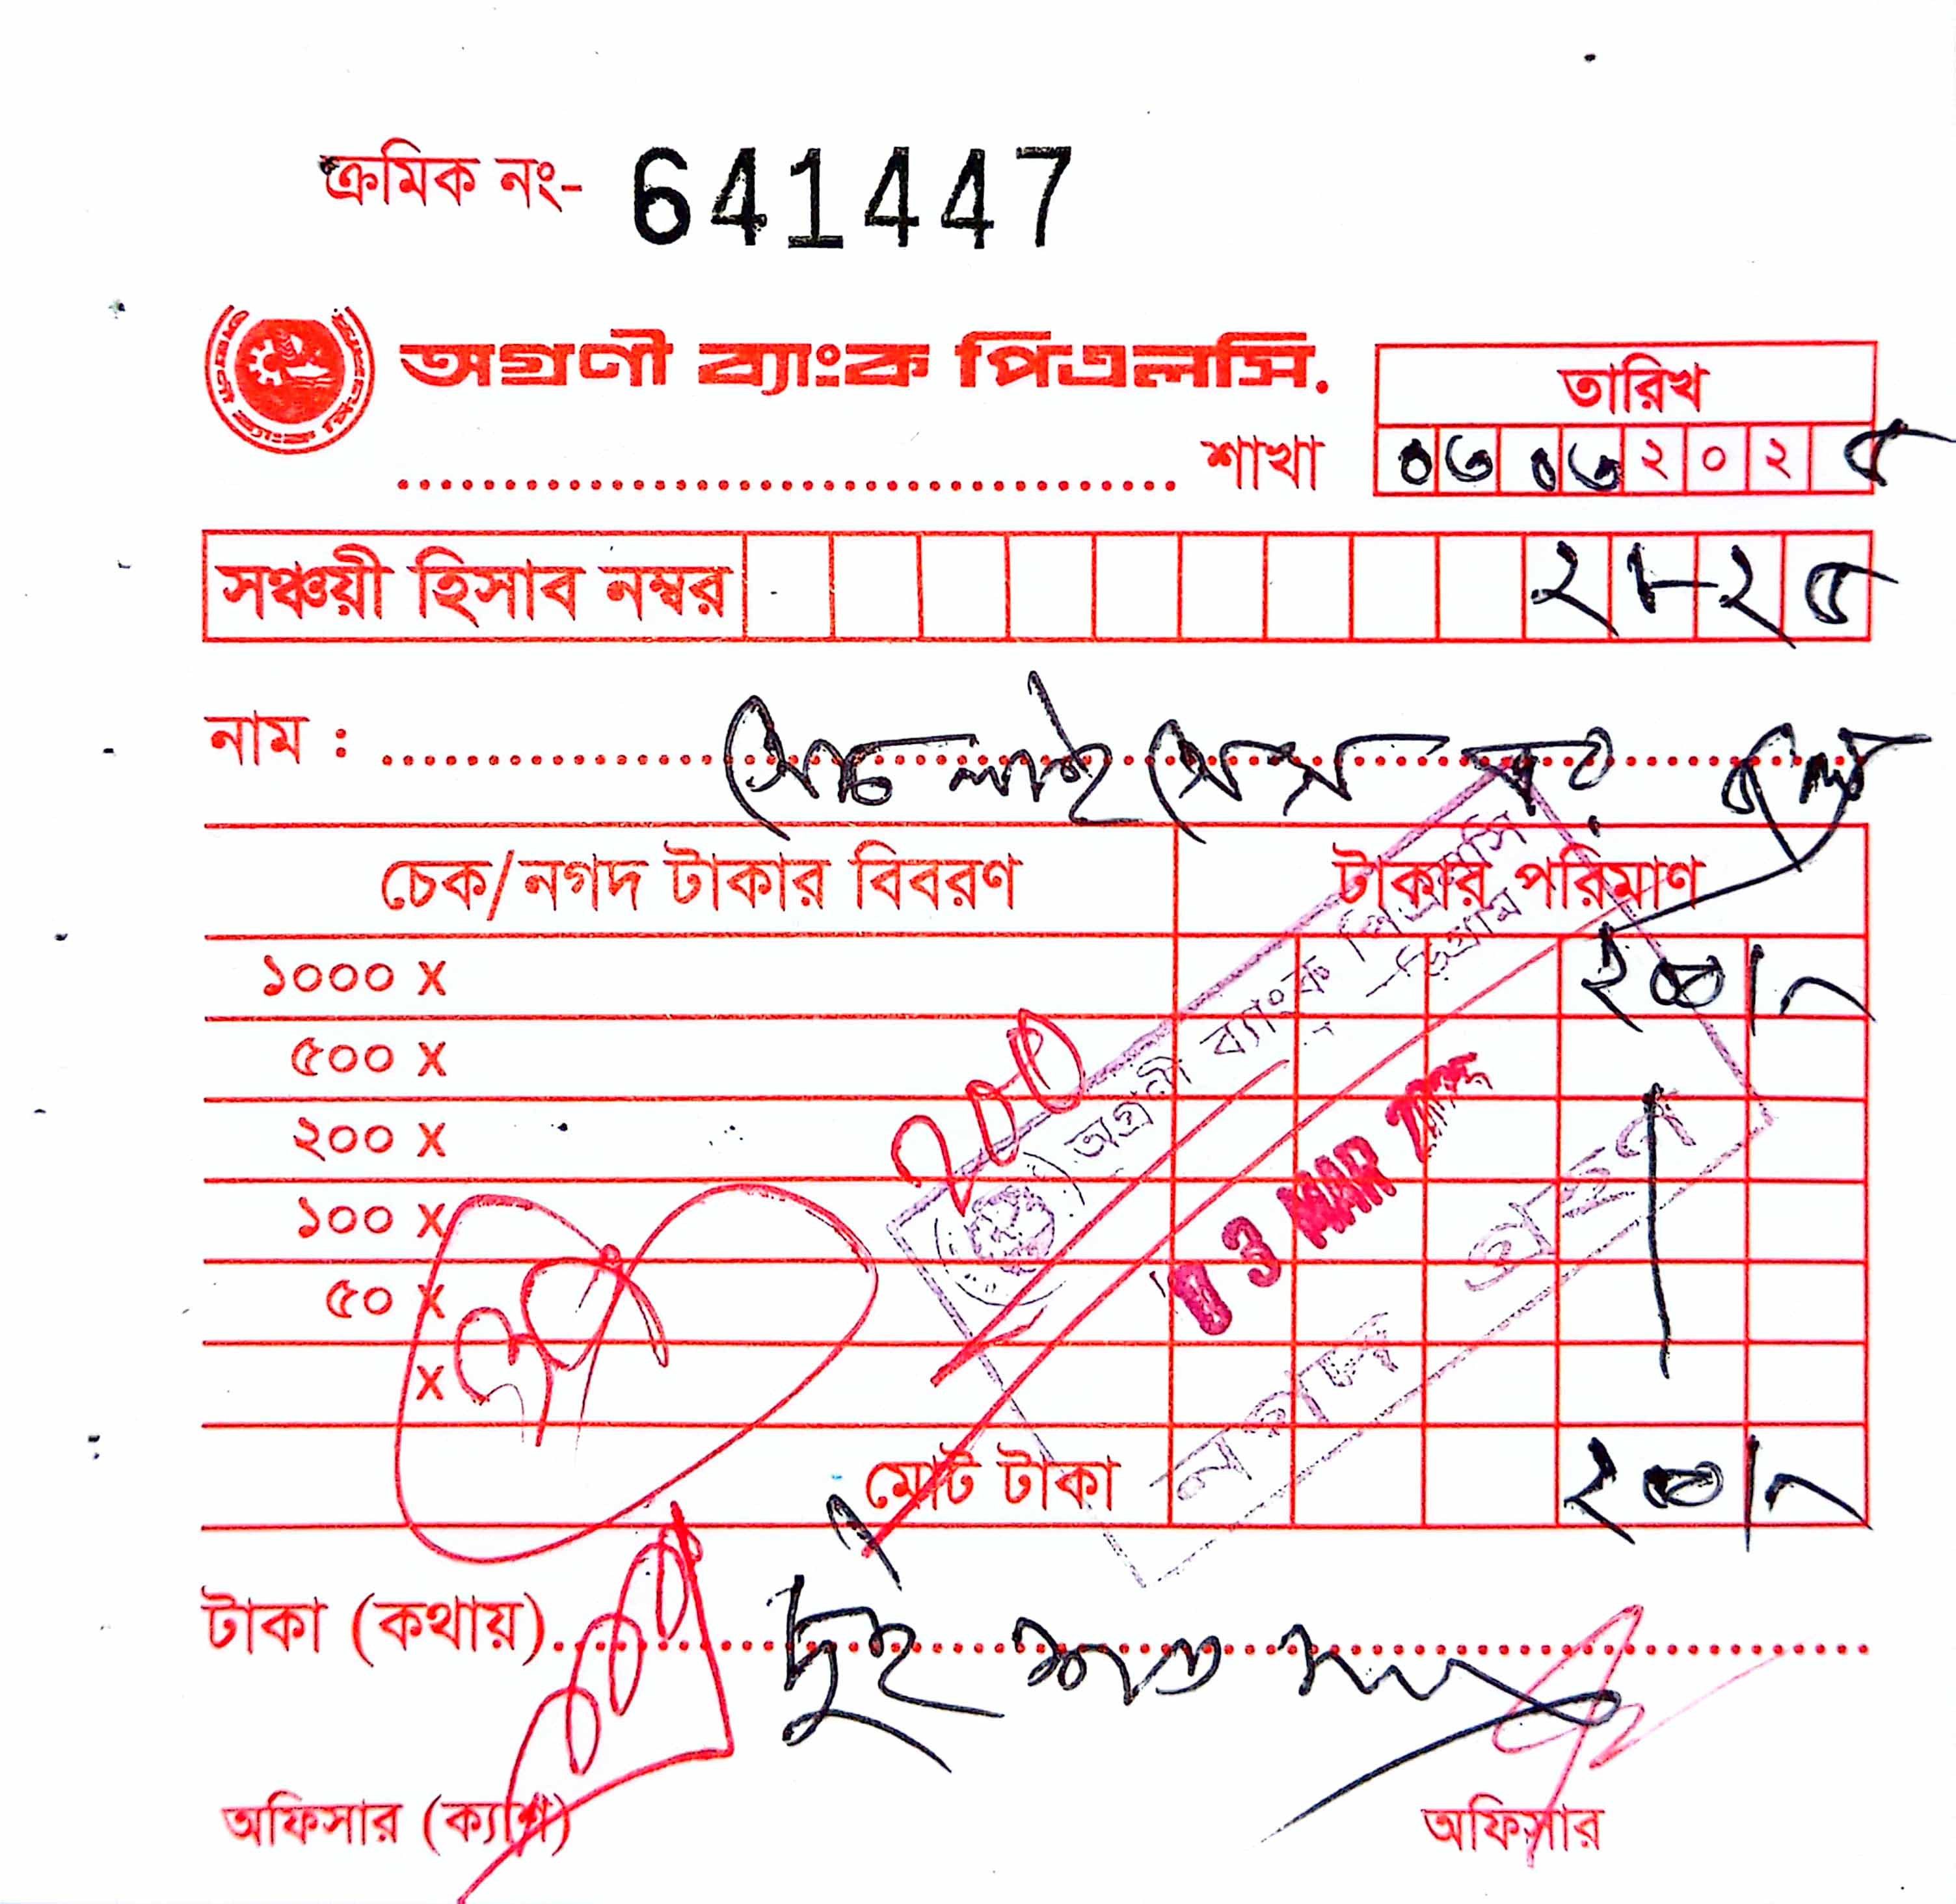 ক্রমিক নং- 641447
অগ্রণী ব্যাংক পিএলসি.
তারিখ
শাখা
০৩ ০৩ ২০২৫
সঞ্চয়ী হিসাব নম্বর ২১-২৫
নাম :
চেক/নগদ টাকার বিবরণ টাকার পরিমাণ
১০০০ X ২০০/-
৫০০ X
২০০ X
১০০ X
৫০ X
X
মোট টাকা ২০০/-
২০০
অগ্রণী ব্যাংক পিএলসি
03 MAR
নগদ গ্রহণ
টাকা (কথায়) দুই শত
অফিসার (ক্যাশ) অফিসার